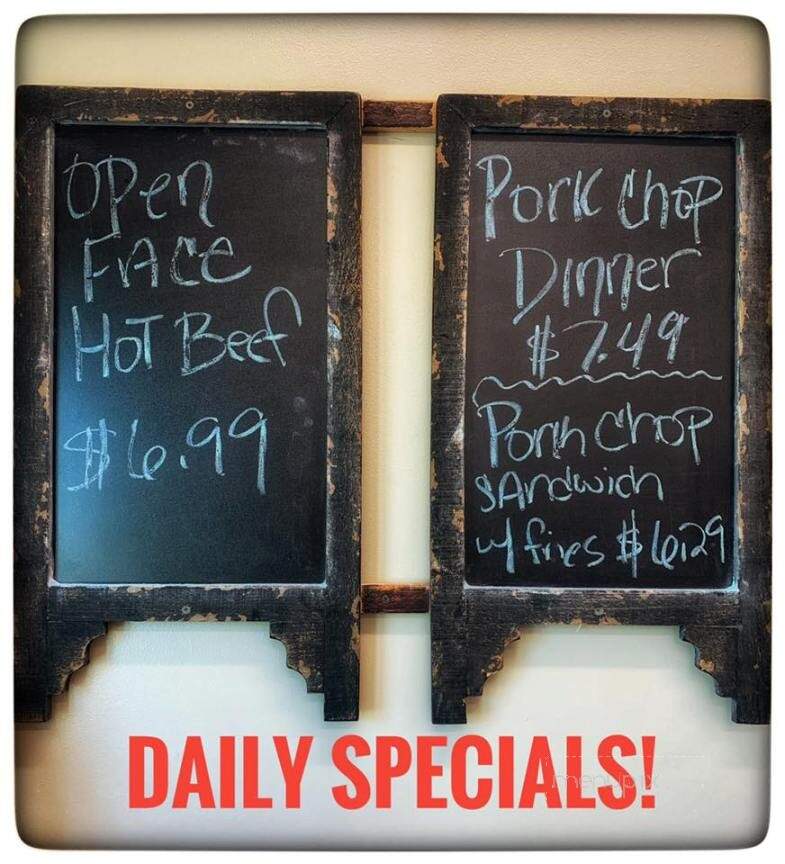 Open
Face
Hot Beef
$6.99
Pork Chop
Dinner
$7.49
Pork Chop
Sandwich
w/ fires $6.29
DAILY SPECIALS!
menupix